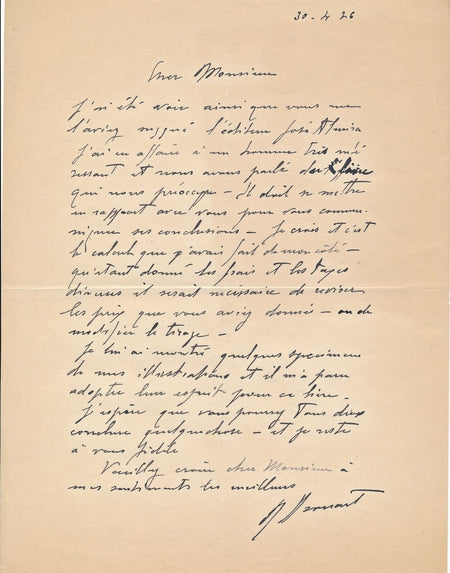 30-4 26
Cher Monsieur
J'ai été voir ainsi que vous me
l'aviez suggéré l'éditeur José
J'ai eu affaire à un homme très inté
ressant et nous avons parlé
qui nous préoccupe - Il doit se mettre
en rapport avec vous pour vous commu-
niquer ses conclusions - Je crois et c'est
le calcul que j'avais fait de mon côté -
qu'étant donné les frais et les taxes
diverses il serait nécessaire de reviser
les prix que vous aviez donnés - ou de
modifier le tirage -
Je lui ai montré quelques specimens
de mes illustrations et il m'a paru
adopter leur esprit pour ce livre -
J'espère que vous pourrez Tous deux
conclure quelque chose - et je reste
à vous fidèle
Veuillez croire cher Monsieur à
mes sentiments les meilleurs